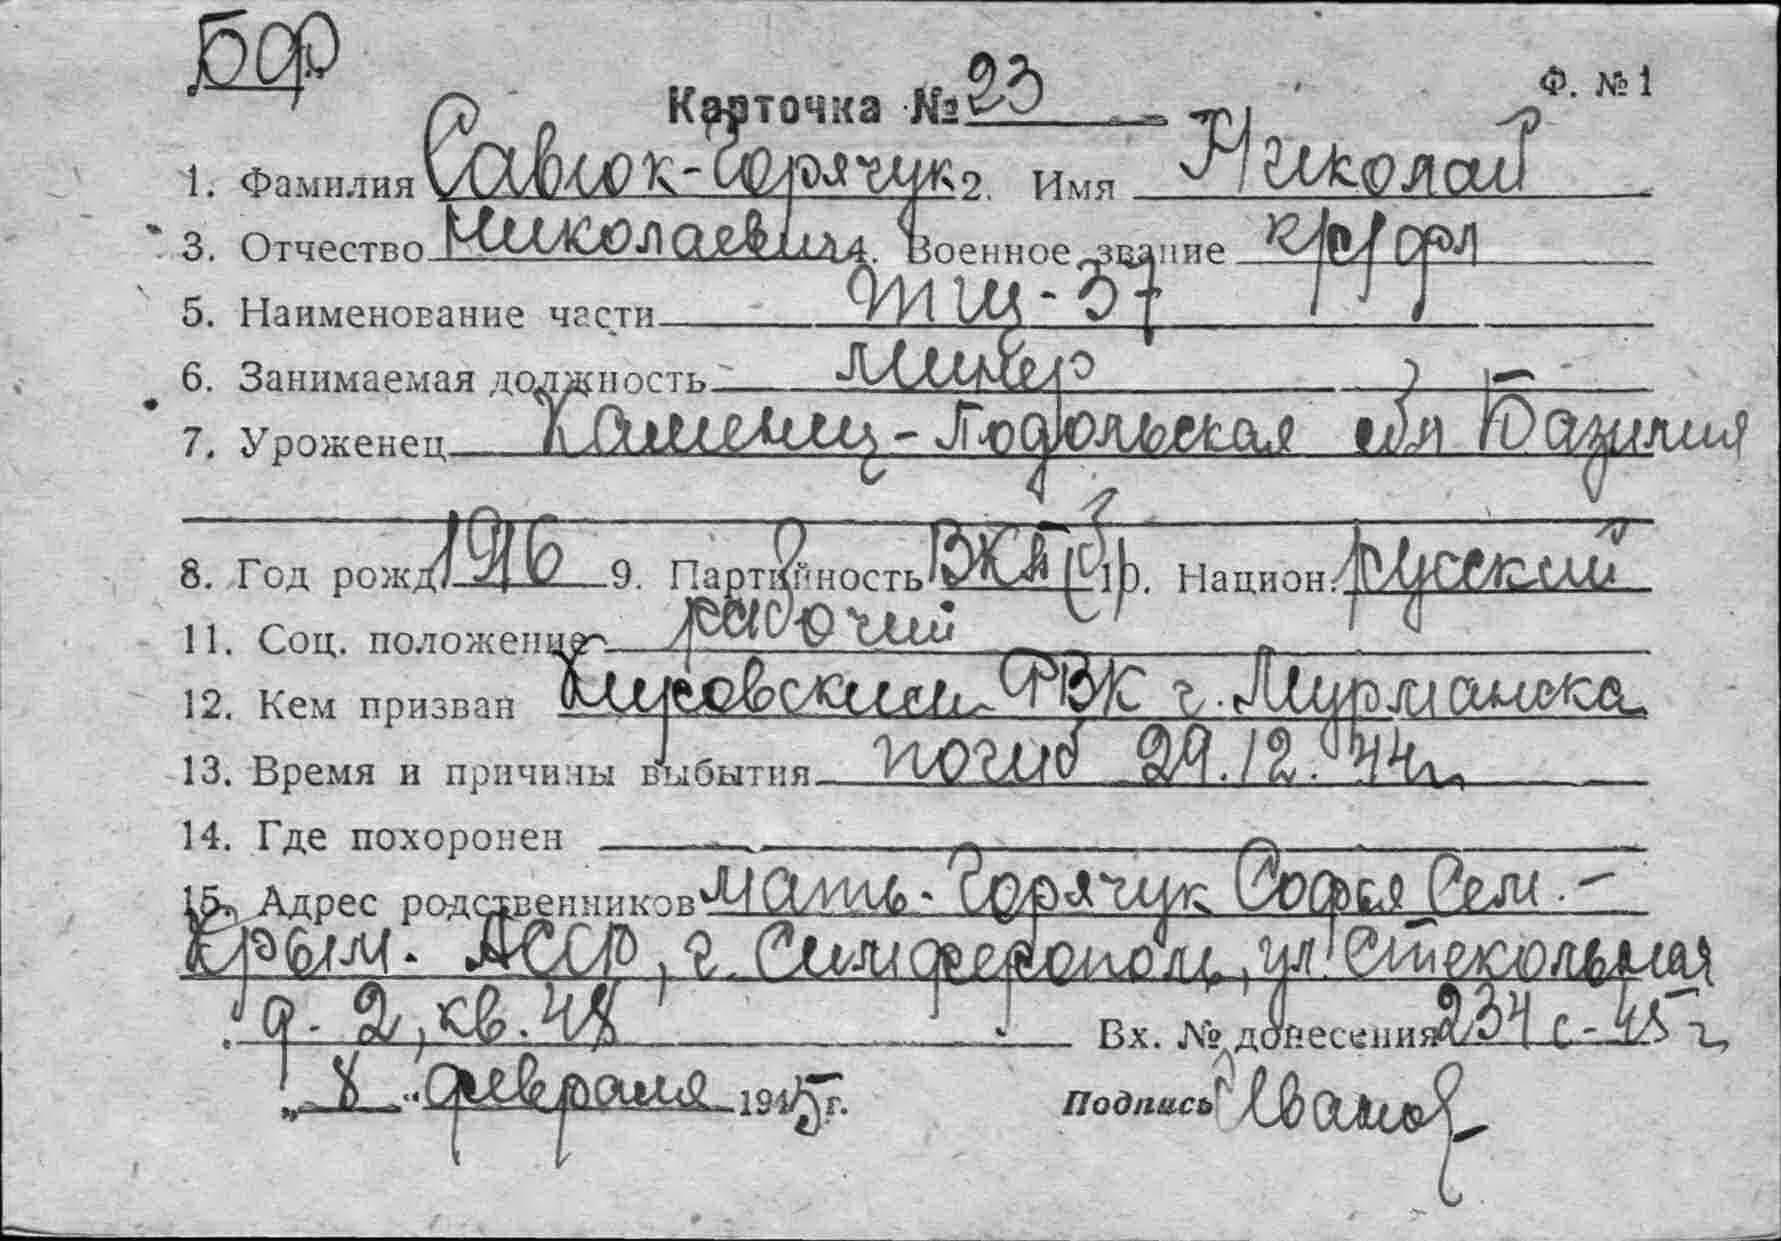 БФ
Карточка № 23
Ф. № 1
1. Фамилия Савлок-Горячук 2. Имя Николай
3. Отчество Николаевич 4. Военное звание к/с/фл
5. Наименование части ТЩ-37
6. Занимаемая должность минер
7. Уроженец Каменец-Подольская обл Базилия
8. Год рожд. 1916 9. Партийность ВКП(б) 10. Национ. русский
11. Соц. положение рабочий
12. Кем призван Кировским РВК г. Мурманска
13. Время и причины выбытия погиб 29.12.44г.
14. Где похоронен
15. Адрес родственников мать - Горячук Софья Сем. -
Крым. АССР, г. Симферополь, ул. Стекольная
д. 2, кв. 48 Вх. № донесения 234 с-45 г.
„8“ февраля 1945 г. Подпись Иванов